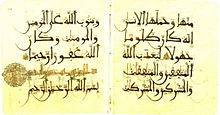 منها وحملها الانسن
انه كان ظلوما
جهولا ليعذب الله
المنفقين والمنفقت
والمشركين والمشركت
ويتوب الله على المو
منين والمومنت وكان
الله غفورا رحيما
بسم الله الرحمن الرحيم